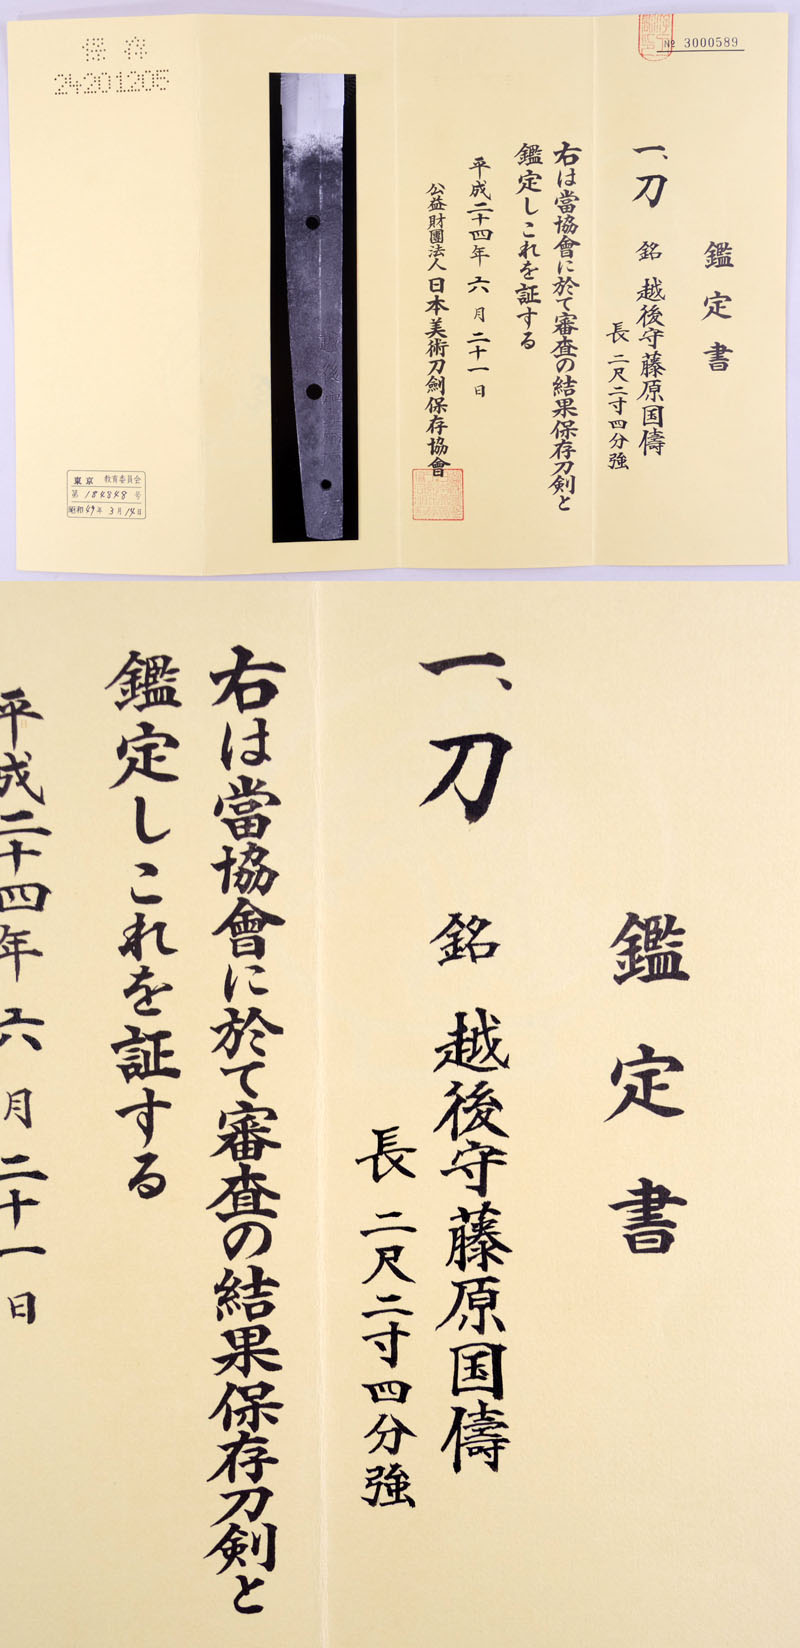 № 3000589
鑑定書
一、刀 銘 越後守藤原国儔
長 二尺二寸四分強
右は當協會に於て審査の結果保存刀剣と
鑑定しこれを証する
平成二十四年 六月 二十一日
公益財團法人 日本美術刀劍保存協會
保存
24201205
東京 教育委員会
第 184848 号
昭和49年 3月 14日
鑑定書
一、刀 銘 越後守藤原国儔
長 二尺二寸四分強
右は當協會に於て審査の結果保存刀剣と
鑑定しこれを証する
平成二十四年 六月 二十一日